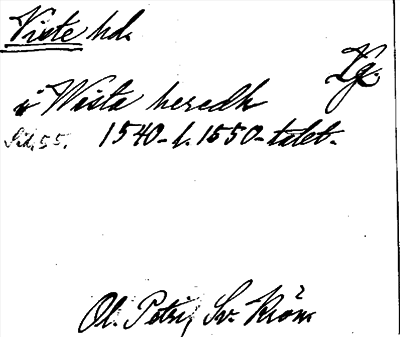 Viste hd.
Vg.
i Wista heredh
Sid. 55. 1540-t. 1550-talet.
Ol. Petri, Sv. Krön.